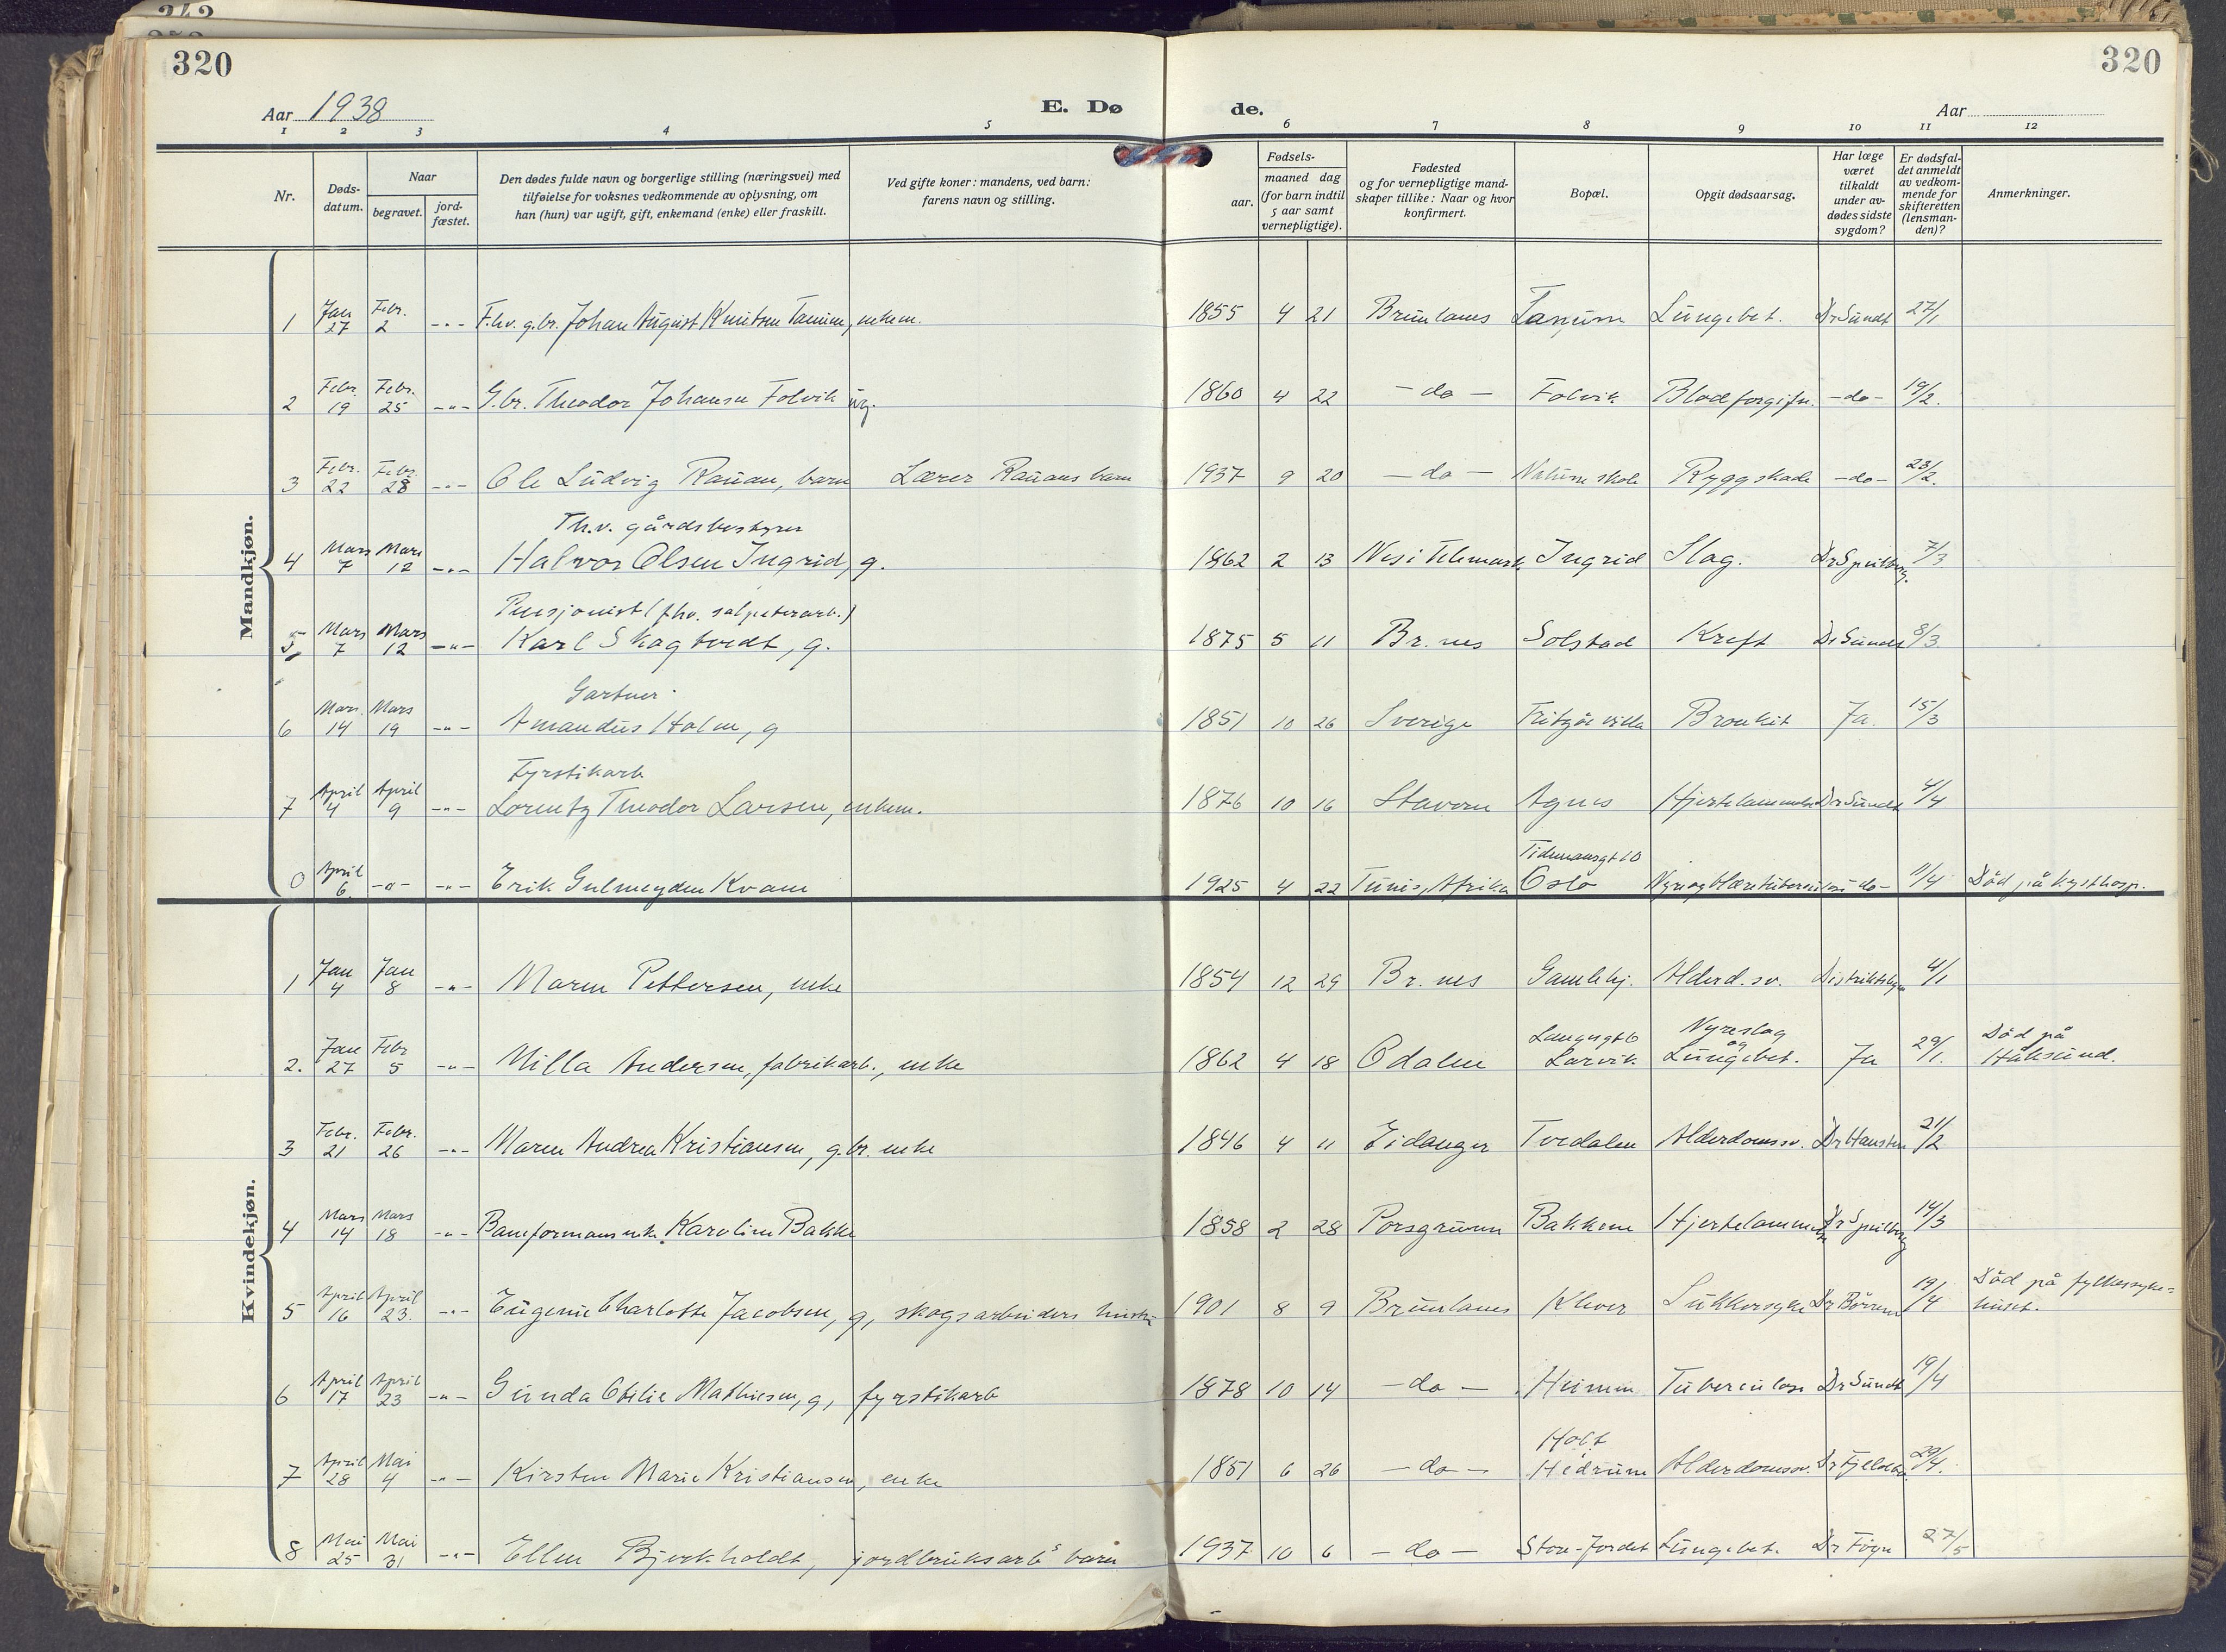 320
320
Aar 1938
E. Dø
de.
Aar
1 2 3 4 5 6 7 8 9 10 11 12
Nr.
Døds-datum.
Naar
begravet.
jord-fæstet.
Den dødes fulde navn og borgerlige stilling (næringsvei) med
tilføielse for voksnes vedkommende av oplysning, om
han (hun) var ugift, gift, enkemand (enke) eller fraskilt.
Ved gifte koner: mandens, ved barn:
farens navn og stilling.
Fødsels-
aar.
maaned dag
(for barn indtil
5 aar samt
vernepligtige).
Fødested
og for vernepligtige mand-
skaper tillike: Naar og hvor
konfirmert.
Bopæl.
Opgit dødsaarsag.
Har læge
været
tilkaldt
under av-
dødes sidste
sygdom?
Er dødsfal-
det anmeldt
av vedkom-
mende for
skifteretten
(lensman-
den)?
Anmerkninger.
Mandkjøn.
1 Jan 27 Febr. 2 -"- F.hv. g.br. Johan August Knutsen Tanum, enkem. 1855 4 21 Brunlanes Tanum Lungebet. Dr Sundt 27/1
2 Febr. 19 Febr. 25 -"- G.br. Theodor Johansen Folvik ug. 1860 4 22 -do- Folvik Blodforgifn. -do- 19/2.
3 Febr. 22 Febr. 28 -"- Ole Ludvig Rauan, barn Lærer Rauans barn 1937 9 20 -do- Nalum skole Ryggskade -do- 23/2.
Fh.v. gårdsbestyrer
4 Mars 7 Mars 12 -"- Halvor Olsen Ingrid, g. 1862 2 13 Nes i Telemark Ingrid Slag. 7/3
Pensjonist (fhv. salpeterarb.)
5 Mars 7 Mars 12 -"- Karl Skagtvedt, g. 1875 5 11 Br.nes Solstad Kreft Dr Sundt 8/3
Gartner
6 Mars 14 Mars 19 -"- Amandus Holm, g 1851 10 26 Sverige Fritzøe villa Bronkit Ja. 15/3
Fyrstikarb
7 April 4 April 9 -"- Lorentz Theodor Larsen, enkem. 1876 10 16 Stavern Agnes Hjertelammelse Dr Sundt 4/4
Tidemansgt 10
0 April 6 -"- -"- Erik Gulmeyden Kvam 1925 4 22 Tunis, Afrika Oslo Nyre og blæretuberculose -do- 11/4 Död på kysthosp.
Kvindekjøn.
1 Jan 4 Jan 8 -"- Maren Pettersen, enke 1854 12 29 Br.nes Gamlehj. Alderd.sv. Distriktslegen 4/1
2. Jan 27 Febr 5 -"- Milla Andersen, fabrikarb., enke 1862 4 18 Odalen Langesgt 6 Larvik Nyreslag og Lungebet. Ja 29/1. Död på Håksund.
3 Febr. 21 Febr. 26 -"- Maren Andrea Kristiansen, g.br. enke 1846 4 11 Eidanger Tvedalen Alderdomssv. Dr Hansten 21/2
4 Mars 14 Mars 18 -"- Baneformans enke Karoline Bakke 1858 2 28 Porsgrunn Bakkene Hjertelammelse 14/3
5 April 16 April 23. -"- Eugenie Charlotte Jacobsen, g, skogsarbeiders hustru 1901 8 9 Brunlanes Klever Sukkersyke Dr Börresen 19/4 Död på fylkessyke-
huset.
6 April 17 April 23 -"- Gunda Otilie Mathisen, g, fyrstikarb 1878 10 14 -do- Heimen Tuberculose Dr Sundt 19/4
7 April 28 Mai 4 -"- Kirsten Marie Kristiansen, enke 1851 6 26 -do- Holt i Hedrum Alderdomssv. 29/4.
8 Mai 25 Mai 31 -"- Ellen Bjerkholdt, jordbruksarb's barn 1937 10 6 -do- Store-Jordet Lungebet. Dr Fögn 27/5